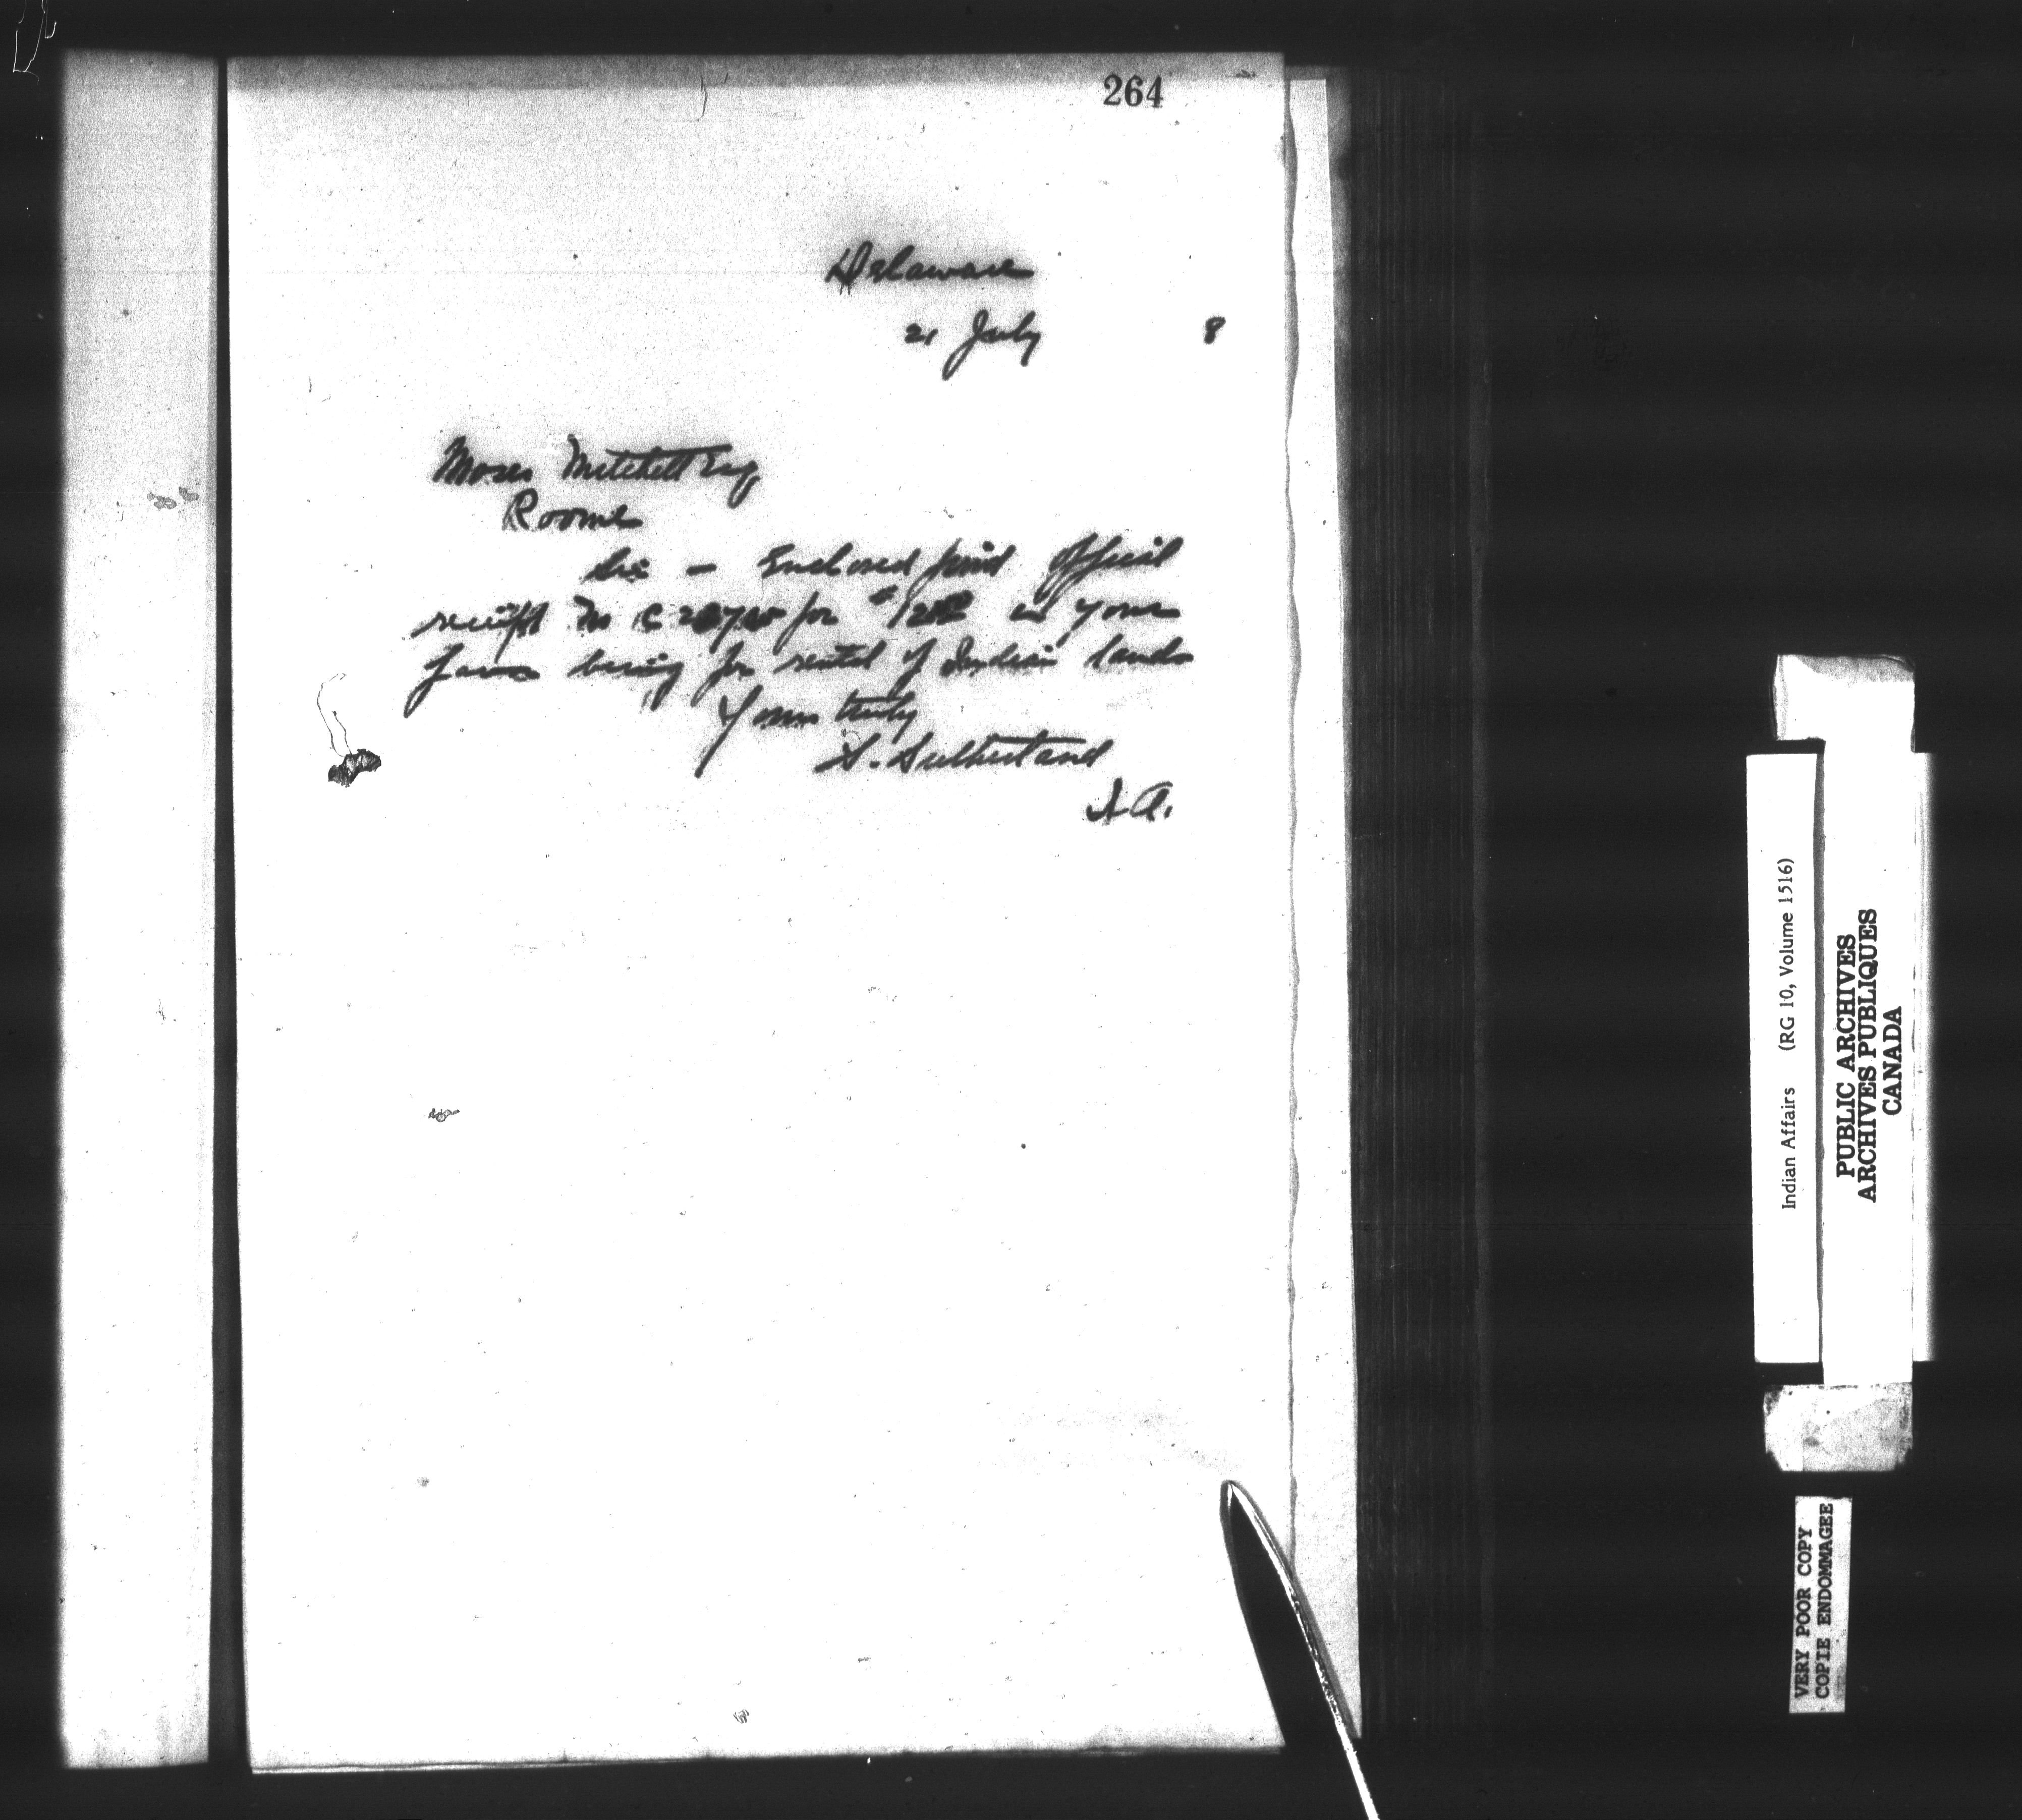 264
Delaware
21 July 8
Moses Mitchell Esq
Roome
Sir – Enclosed find official
receipt No C for $ in your
favor being for rental of Indian lands
Yours truly
S. Sutherland
I A.
Indian Affairs (RG 10, Volume 1516)
PUBLIC ARCHIVES
ARCHIVES PUBLIQUES
CANADA
VERY POOR COPY
COPIE ENDOMMAGEE